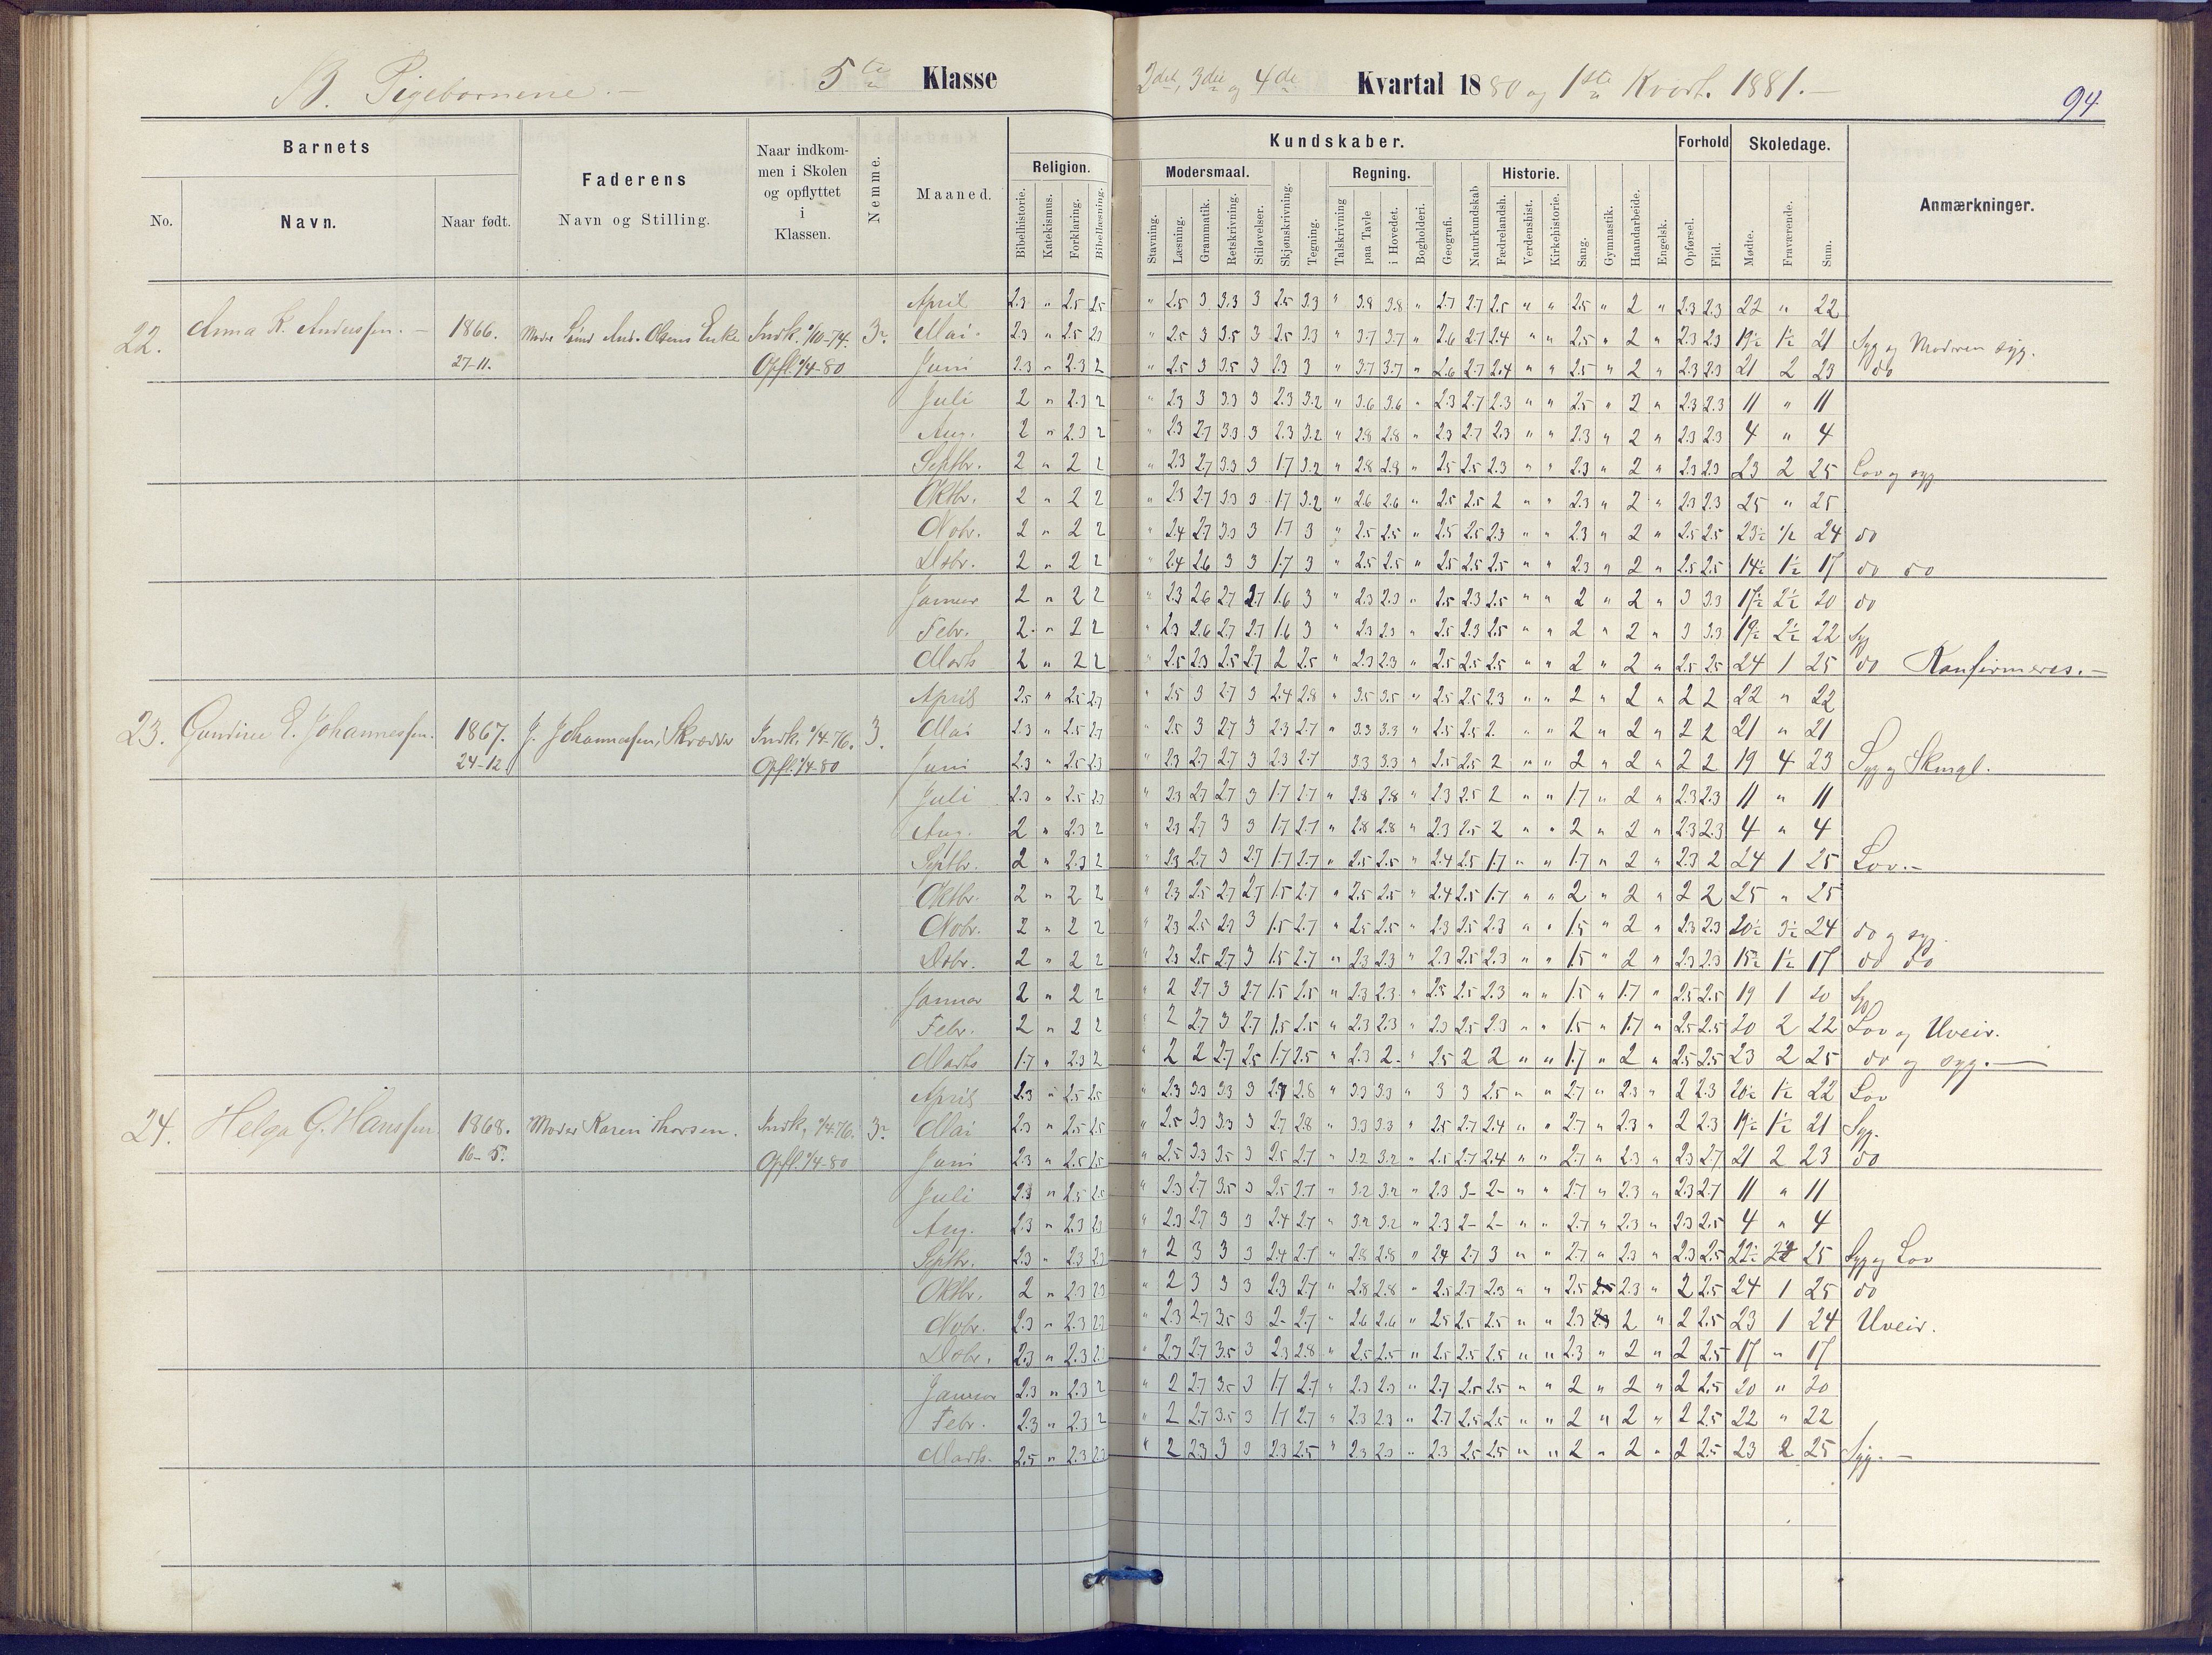 B. Pigebørnene. — 5te Klasse
2det, 3die og 4de Kvartal 1880 og 1ste Kvart. 1881. —
94
Barnets
Faderens
Naar indkommen i Skolen og opflyttet i Klassen.
Nemme.
Maaned.
Kundskaber.
Forhold
Skoledage.
Anmærkninger.
No.
Navn.
Naar født.
Navn og Stilling.
Religion.
Modersmaal.
Regning.
Historie.
Bibelhistorie.
Katekismus.
Forklaring.
Bibellæsning.
Stavning.
Læsning.
Grammatik.
Retskrivning.
Stiløvelser.
Skjønskrivning.
Tegning.
Talskrivning
paa Tavle
i Hovedet.
Bogholderi.
Geografi.
Naturkundskab
Fædrelandsh.
Verdenshist.
Kirkehistorie.
Sang.
Gymnastik.
Haandarbeide.
Engelsk.
Opførsel.
Flid.
Mødte.
Fraværende.
Sum.
April 2.3 " 2.5 2.5 " 2.5 3 3.3 3 2.5 3.3 " 3.8 3.8 " 2.7 2.7 2.5 " " 2.5 " 2 " 2.3 2.3 22 " 22
22. Anna K. Anderssen. — 1866. Moder And. Olsens Enke Indk. 1/10-74. 3.
Mai. 2.3 " 2.5 2.3 " 2.5 3 3.5 3 2.5 3.3 " 3.7 3.7 " 2.6 2.7 2.4 " " 2.5 " 2 " 2.3 2.3 19½ 1½ 21 Syg og Moderen syg.
27-11. Opfl. 1/4-80
Juni 2.3 " 2.3 2 " 2.5 3 3.5 3 2.3 3 " 3.7 3.7 " 2.6 2.7 2.4 " " 2.5 " 2 " 2.3 2.3 21 2 23 do
Juli 2 " 2.3 2 " 2.3 3 3.3 3 2.3 3.2 " 3.6 3.6 " 2.3 2.7 2.3 " " 2.5 " 2 " 2.3 2.3 11 " 11
Aug. 2 " 2.3 2 " 2.3 2.7 3.3 3 2.3 3.2 " 2.8 2.8 " 2.3 2.7 2.3 " " 2.3 " 2 " 2.3 2.3 4 " 4
Septbr. 2 " 2 2 " 2.3 2.7 3.3 3 1.7 3.2 " 2.8 2.8 " 2.5 2.5 2.3 " " 2.3 " 2 " 2.3 2.3 23 2 25 Lov og syg
Oktbr. 2 " 2 2 " 2.3 2.7 3.3 3 1.7 3.2 " 2.6 2.6 " 2.5 2.5 2 " " 2.3 " 2 " 2.3 2.3 25 " 25
Nobr. 2 " 2 2 " 2.4 2.7 3.3 3 1.7 3 " 2.5 2.5 " 2.5 2.5 2.3 " " 2.3 " 2 " 2.5 2.5 23½ ½ 24 do
Dsbr. 2 " 2 2 " 2.4 2.6 3 3 1.7 3 " 2.5 2.5 " 2.5 2.5 2.5 " " 2.3 " 2 " 2.5 2.5 14½ 1½ 17 do do
Januar 2 " 2 2 " 2.3 2.6 2.7 2.7 1.6 3 " 2.3 2.3 " 2.5 2.3 2.5 " " 2 " 2 " 3 3.3 17½ 2½ 20 do
Febr. 2 " 2 2 " 2.3 2.6 2.7 2.7 1.6 3 " 2.3 2.3 " 2.5 2.3 2.5 " " 2 " 2 " 3 3.3 19½ 2½ 22 Syg
Marts 2 " 2 2 " 2.5 2.3 2.5 2.7 2 2.5 " 2.3 2.3 " 2.5 2.5 2.5 " " 2 " 2 " 2.5 2.5 24 1 25 do Konfirmeres. —
April 2.5 " 2.5 2.7 " 2.5 3 2.7 3 2.4 2.8 " 3.5 3.5 " 2.5 2.5 2.3 " " 2 " 2 " 2 2 22 " 22
23. Gundine E. Johannessen. 1867. J. Johannessen, Skrædder Indk. 1/4-76. 3.
Mai 2.3 " 2.5 2.7 " 2.5 3 2.7 3 2.3 2.7 " 3.3 3.3 " 2.5 2.5 2 " " 2 " 2 " 2 2 21 " 21
24-12. Opfl. 1/4-80
Juni 2.3 " 2.5 2.3 " 2.3 2.7 2.7 3 2.3 2.7 3.3 3.3 " 2.5 2.5 2 " " 2 " 2 " 2 2 19 4 23 Syg og Skmgl.
Juli 2.3 " 2.5 2.3 " 2.3 2.7 2.7 3 1.7 2.7 " 2.8 2.8 " 2.3 2.5 2 " " 1.7 " 2 " 2.3 2.3 11 " 11
Aug. 2 " 2.3 2 " 2.3 2.7 3 3 1.7 2.7 " 2.8 2.8 " 2.3 2.5 2 " " 2 " 2 " 2.3 2.3 4 " 4
Septbr. 2 " 2.3 2 " 2.3 2.7 3 2.7 1.7 2.7 " 2.5 2.5 " 2.4 2.5 1.7 " " 1.7 " 2 " 2.3 2 24 1 25 Lov. —
Oktbr. 2 " 2 2 " 2.3 2.5 2.7 2.7 1.5 2.7 " 2.5 2.5 " 2.4 2.5 1.7 " " 2 " 2 " 2 2 25 " 25
Nobr. 2 " 2 2 " 2.3 2.5 2.7 3 1.5 2.7 " 2.5 2.5 " 2.3 2.5 2.3 " " 1.5 " 2 " 2.3 2.3 20½ 3½ 24 do og syg.
Dsbr. 2 " 2 2 " 2.3 2.5 2.7 3 1.5 2.7 " 2.3 2.3 " 2.3 2.5 2.3 " " 1.5 " 2 " 2.3 2.3 15½ 1½ 17 do do
Januar 2 " 2 2 " 2 2.7 3 2.7 1.5 2.5 " 2.3 2.3 " 2.5 2.5 2.3 " " 1.5 " 1.7 " 2.5 2.5 19 1 20 Syg
Febr. 2 " 2 2 " 2 2.7 3 2.7 1.5 2.5 " 2.3 2.3 " 2.3 2.5 2.3 " " 1.5 " 1.7 " 2.5 2.5 20 2 22 Lov og Uveir.
Marts 1.7 " 2.3 2 " 2 2 2.7 2.5 1.7 2.5 " 2.3 2 " 2.5 2 2 " " 1.7 " 2 " 2.5 2.5 23 2 25 do og syg. —
April 2.3 " 2.5 2.5 " 2.3 3.3 3.3 3 2.7 2.8 " 3.3 3.3 " 3 3 2.5 " " 2.7 " 2.3 " 2 2.3 20½ 1½ 22 Lov
24. Helga G. Hanssen 1868. Moder Karen Thorsen. Indk. 1/4-76. 3.
Mai 2.3 " 2.5 2.5 " 2.5 3.3 3.3 3 2.7 2.8 " 3.3 3.3 " 2.5 2.7 2.4 " " 2.7 " 2.3 " 2 2.3 19½ 1½ 21 Syg.
16-5. Opfl. 1/4-80
Juni 2.3 " 2.5 2.5 " 2.5 3.3 3.5 3 2.5 2.7 " 3.2 3.2 " 2.5 2.7 2.4 " " 2.7 " 2.3 " 2.3 2.7 21 2 23 do
Juli 2.3 " 2.5 2.5 " 2.3 2.7 3.5 3 2.5 2.7 " 3.2 3.2 " 2.3 3- 2- " " 2.7 " 2.3 " 2.3 2.7 11 " 11
Aug. 2.3 " 2.3 2.3 " 2.3 2.7 3 3 2.4 2.7 " 3.2 3.2 " 2.3 2- 2- " " 2.7 " 2.3 " 2.3 2.5 4 " 4
Septbr. 2.3 " 2.3 2.3 " 2 3 3 3 2.4 2.7 " 2.8 2.8 " 2.4 2.7 3 " " 2.7 " 2.3 " 2.3 2.5 22½ 2½ 25 Syg og Lov
Oktbr. 2 " 2.3 2.3 " 2 3 3 3 2.3 2.7 " 2.8 2.8 " 2.5 2.7 2.3 " " 2.5 2.3 " 2 2.5 24 1 25 do
Nobr. 2.3 " 2.3 2.3 " 2.3 2.7 3.5 3 2- 2.7 " 2.6 2.6 " 2.5 2.5 2.5 " " 2.3 2 " 2 2.5 23 1 24 Uveir.
Dsbr. 2.3 " 2.3 2.3 " 2.3 2.7 3.5 3 2.3 2.8 " 2.5 2.5 " 2.5 2.5 2.5 " " 2.3 " 2 " 2 2.5 17 " 17
Januar 2.3 " 2.3 2 " 2 2.7 3.5 3 1.7 2.7 " 2.3 2.3 " 2.7 2.5 2.5 " " 2 " 2 " 2 2.5 20 " 20
Febr. 2.3 " 2.3 2 " 2 2.7 3.5 3 1.7 2.7 " 2.3 2.3 " 2.7 2.5 2.5 " " 2 " 2 " 2 2.5 22 " 22
Marts. 2.5 " 2.3 2.3 " 2 2.3 3 3 2.3 2.5 " 2.3 2.3 " 2.3 2.5 2.5 " " 2 " 2 " 2 2.5 23 2 25 Syg. —